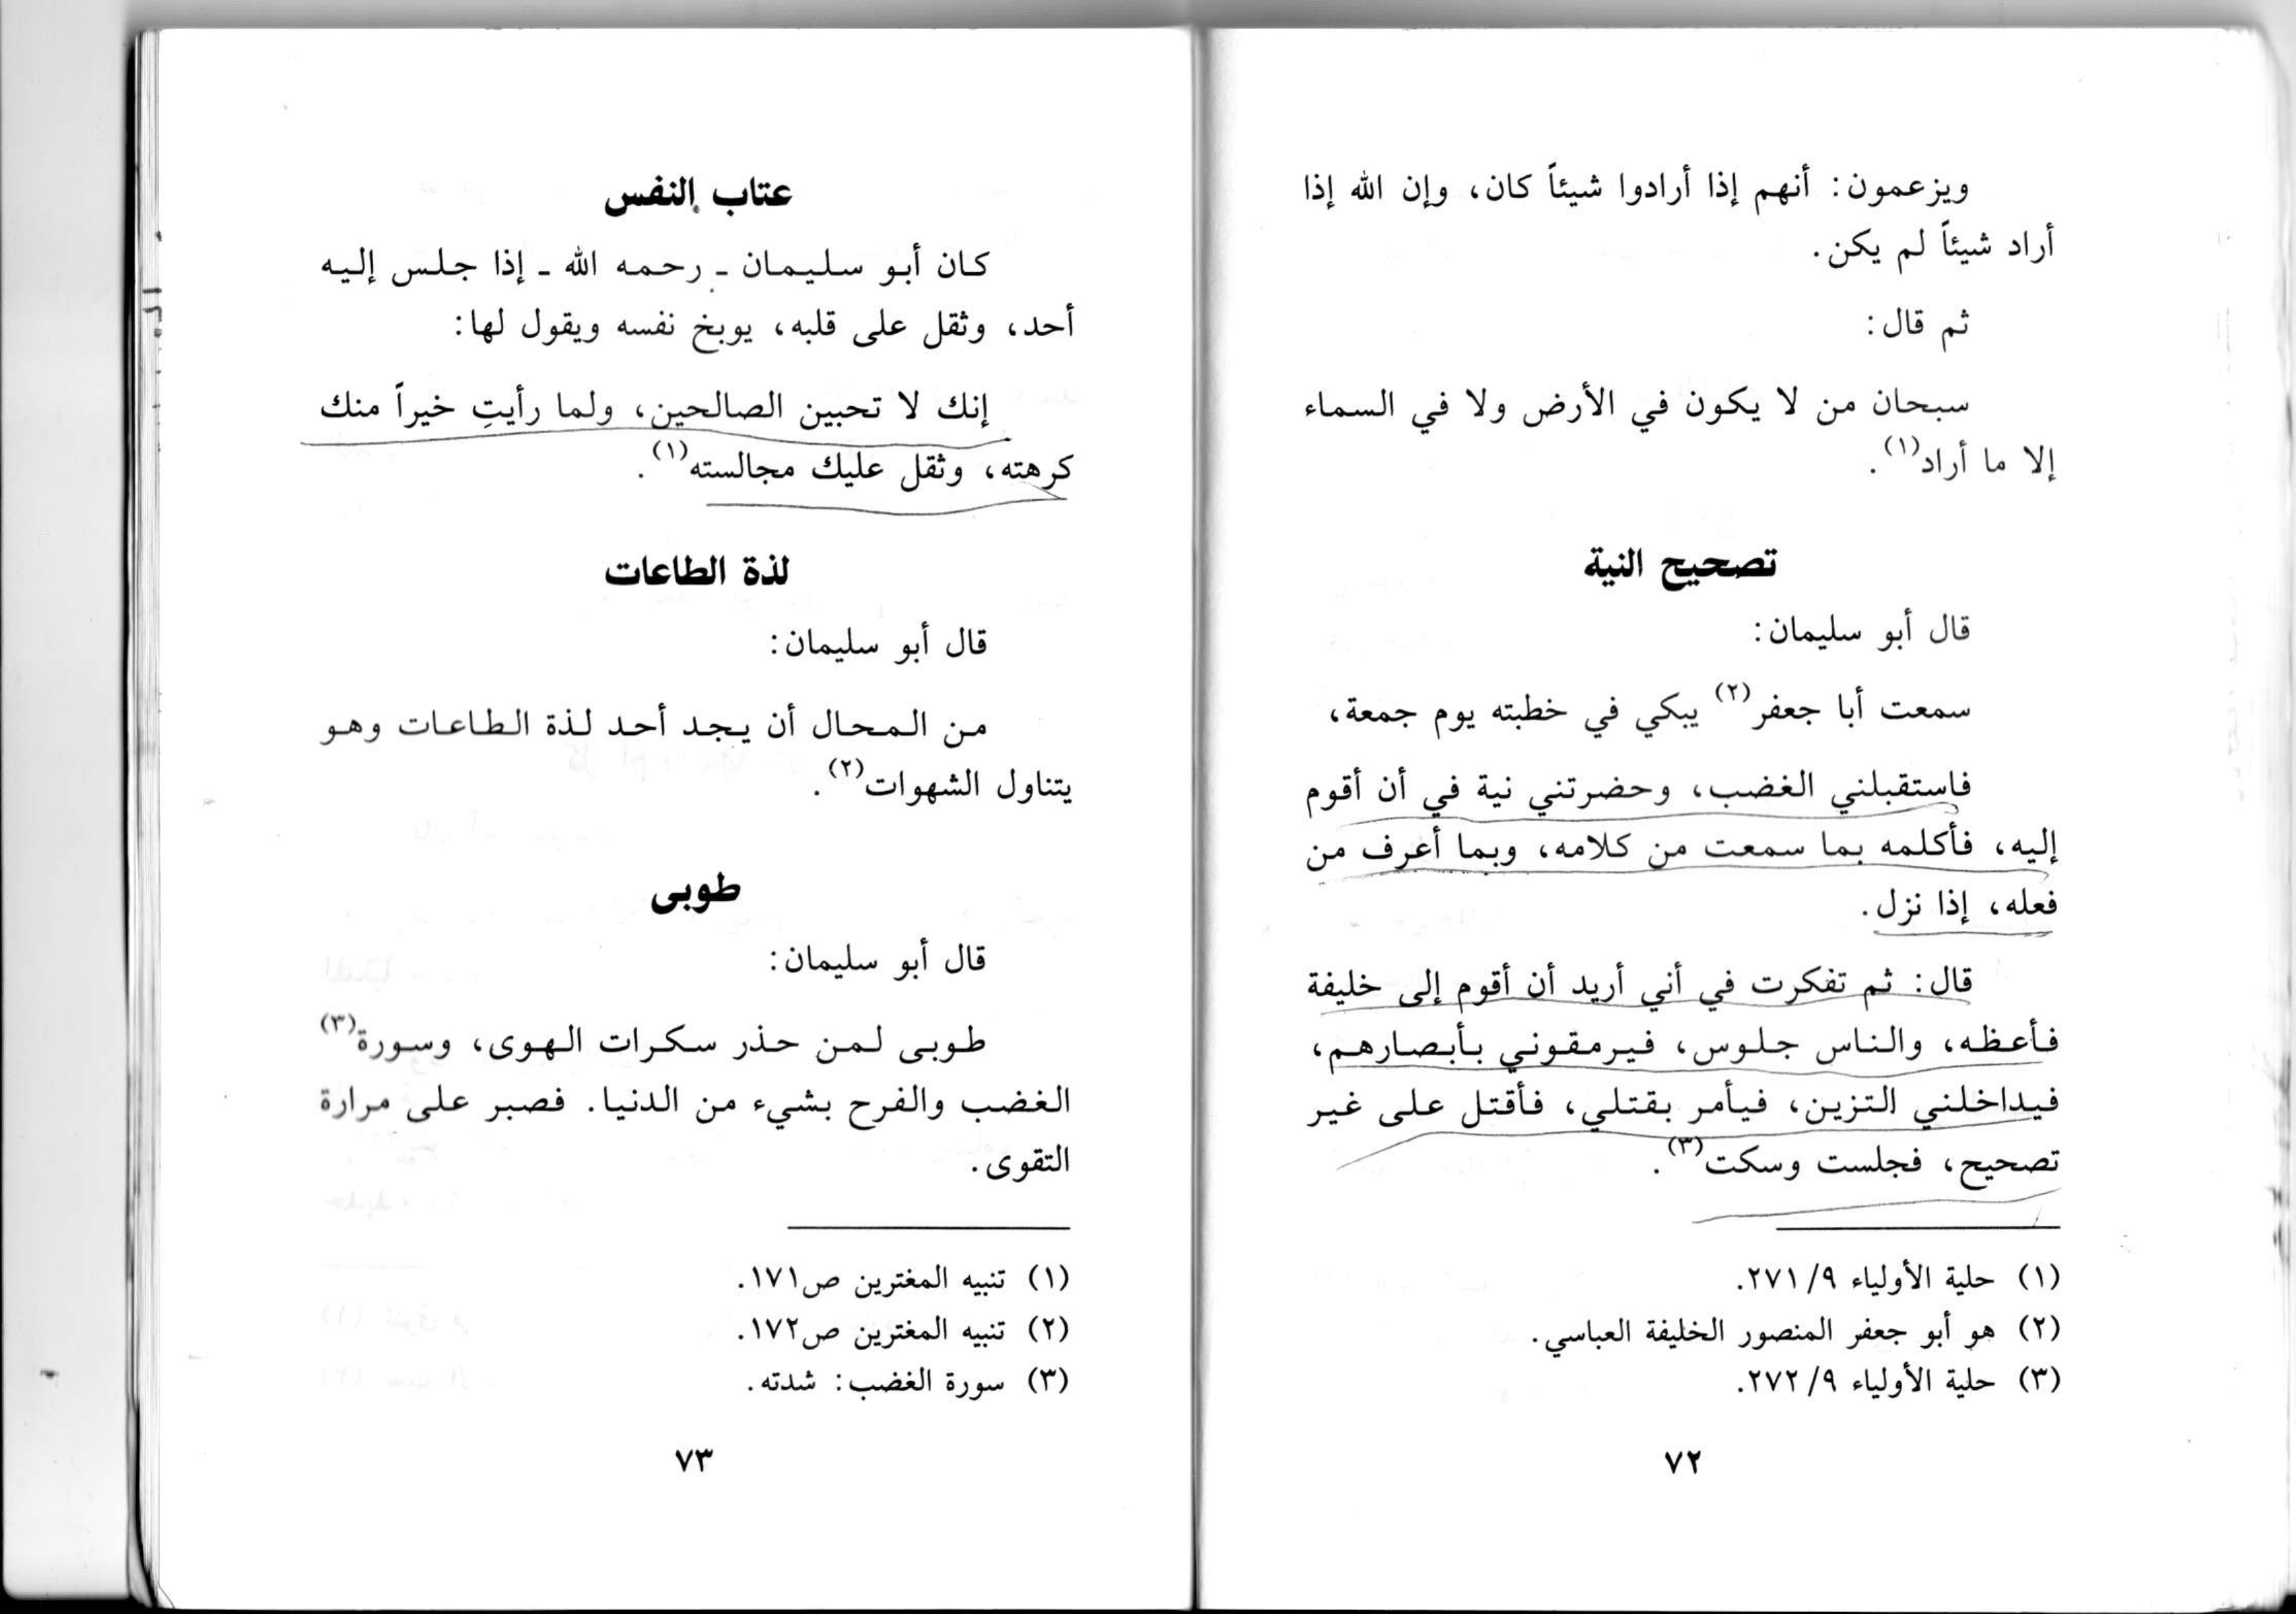 ويزعمون: أنهم إذا أرادوا شيئاً كان، وإن الله إذا
أراد شيئاً لم يكن.
ثم قال:
سبحان من لا يكون في الأرض ولا في السماء
إلا ما أراد(١).
تصحيح النية
قال أبو سليمان:
سمعت أبا جعفر(٢) يبكي في خطبته يوم جمعة،
فاستقبلني الغضب، وحضرتني نية في أن أقوم
إليه، فأكلمه بما سمعت من كلامه، وبما أعرف من
فعله، إذا نزل.
قال: ثم تفكرت في أني أريد أن أقوم إلى خليفة
فأعظه، والناس جلوس، فيرمقوني بأبصارهم،
فيداخلني التزين، فيأمر بقتلي، فأقتل على غير
تصحيح، فجلست وسكت(٣).
(١) حلية الأولياء ٩/ ٢٧١.
(٢) هو أبو جعفر المنصور الخليفة العباسي.
(٣) حلية الأولياء ٩/ ٢٧٢.
٧٢
عتاب النفس
كان أبو سليمان ـ رحمه الله ـ إذا جلس إليه
أحد، وثقل على قلبه، يوبخ نفسه ويقول لها:
إنك لا تحبين الصالحين، ولما رأيتِ خيراً منك
كرهته، وثقل عليك مجالسته(١).
لذة الطاعات
قال أبو سليمان:
من المحال أن يجد أحد لذة الطاعات وهو
يتناول الشهوات(٢).
طوبى
قال أبو سليمان:
طوبى لمن حذر سكرات الهوى، وسورة(٣)
الغضب والفرح بشيء من الدنيا. فصبر على مرارة
التقوى.
(١) تنبيه المغترين ص١٧١.
(٢) تنبيه المغترين ص١٧٢.
(٣) سورة الغضب: شدته.
٧٣